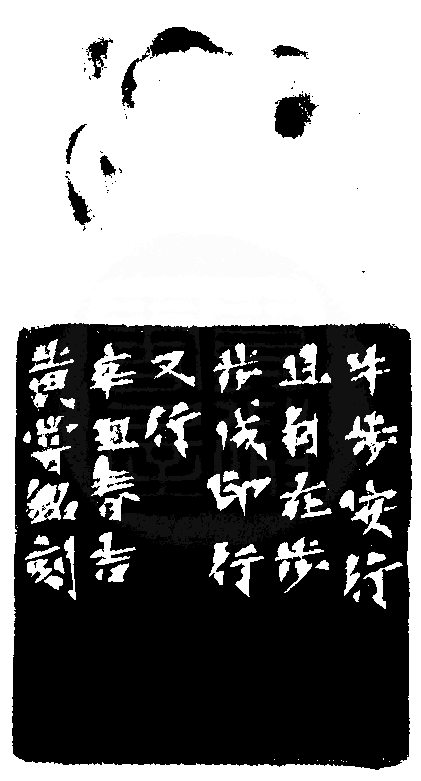 牛步安行
且自在步
步成印行
又行
辛丑春吉
黄尝銘刻